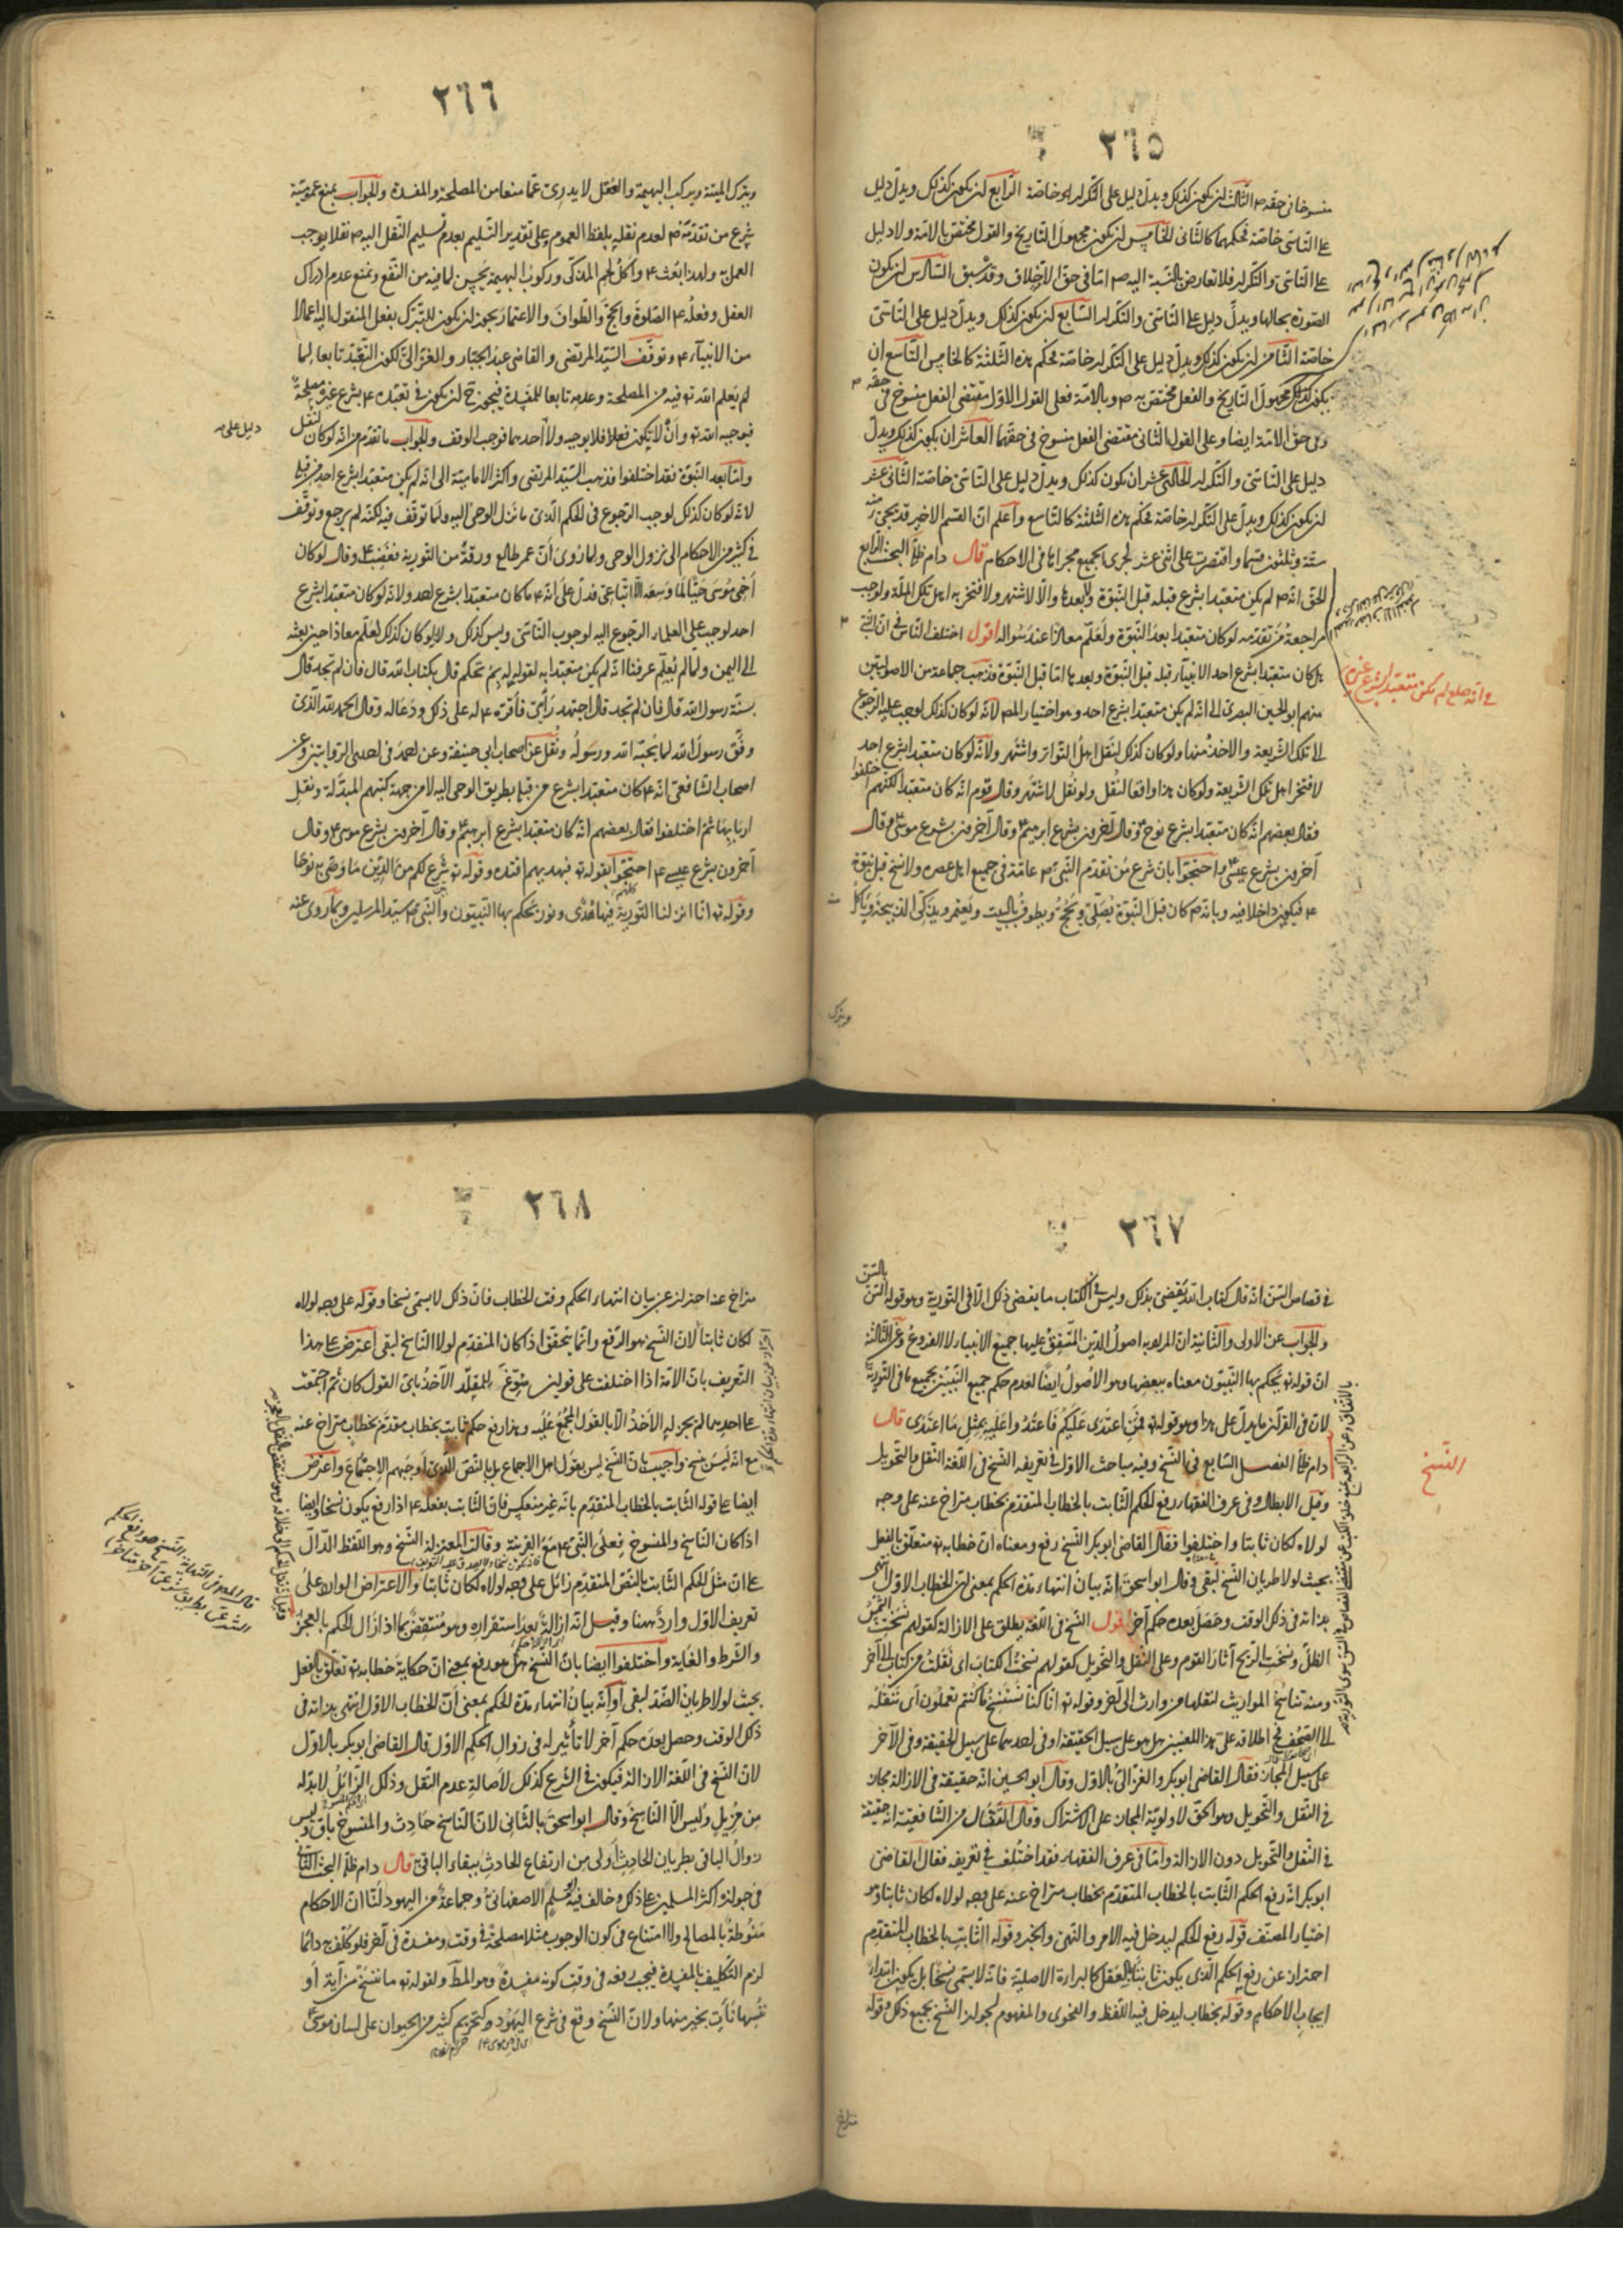 ٢٦٥
منسوخا في حقه ص الثالث ان يكون كذلك ويدل دليل على التكرار له خاصة الرابع ان يكون كذلك ويدل دليل
على التاسي خاصة فحكمهما كالثاني الخامس ان يكون مجهول التاريخ والقول مختص بالامة ولا دليل
على التاسي والتكرار فلا تعارض بالنسبة اليه ص اما في حق الاختلاف وقد سبق السادس ان يكون
الصورة بحالها ويدل دليل على التاسي والتكرار السابع ان يكون كذلك ويدل دليل على التاسي
خاصة الثامن ان يكون كذلك ويدل دليل على التكرار خاصة فحكم هذه الثلثة كالخامس التاسع ان
يكون كذلك مجهول التاريخ والفعل مختص به ص وبالامة فعلى القول الاول مقتضى الفعل منسوخ في حقه ص
وفي حق الامة ايضا وعلى القول الثاني مقتضى الفعل منسوخ في حقهما العاشر ان يكون كذلك ويدل
دليل على التاسي والتكرار الحادي عشر ان يكون كذلك ويدل دليل على التاسي خاصة الثاني عشر
ان يكون كذلك ويدل على التكرار خاصة فحكم هذه الثلثة كالتاسع واعلم ان القسم الاخير قد يجيء منه
ستة وثلثون قسما واقتصرت على اثنى عشر لجرى الجميع مجراها في الاحكام قال دام ظله البحث الرابع
الحق انه ص لم يكن متعبدا بشرع قبله قبل النبوة ولا بعدها والا لاشتهر ولافتخر به اهل تلك الملة ولوجب
مراجعة من تقدمه لو كان متعبدا بعد النبوة ولعلم معاذا عند سواله اقول اختلف الناس في ان النبي ص
هل كان متعبدا بشرع احد الانبياء قبله قبل النبوة وبعدها اما قبل النبوة فذهب جماعة من الاصوليين
منهم ابو الحسين البصري الى انه لم يكن متعبدا بشرع احد وهو اختيار المص لانه لو كان كذلك لوجب عليه الرجوع
الى تلك الشريعة والاخذ منها ولو كان كذلك لنقل اهل التواتر واشتهر ولانه لو كان متعبدا بشرع احد
لافتخر اهل تلك الشريعة ولو كان هذا واقعا لنقل ولو نقل لاشتهر وقال قوم انه كان متعبدا لكنهم اختلفوا
فقال بعضهم انه كان متعبدا بشرع نوح ع وقال آخرون بشرع ابرهيم ع وقال آخرون بشرع موسى ع وقال
آخرون بشرع عيسى ع واحتجوا بان شرع من تقدم النبي ص عامة في جميع اهل عصره ولا نسخ قبل نبوة
ع فيكون داخلا فيه وبانه ص كان قبل النبوة يصلي ويحج ويطوف بالبيت ويعتمر ويذكي الذبيحة وياكل
ويترك
في انه صلعم لم يكن متعبدا بشرع غيره
٢٦٦
ويترك الميتة ويركب البهيمة والعقل لا يدرى عما منعا من المصلحة والمفسدة والجواب بمنع عمومية
شرع من تقدمه ص لعدم نقله بلفظ العموم وعلى تقدير التسليم بعدم تسليم النقل اليه ص نقلا يوجب
العمل به ولهذا بعث ع واكل لحم المذكى وركوب البهيمة يحسن لما فيه من النفع ونمنع عدم ادراك
العقل وفعله ع الصلوة والحج والطواف والاعتمار يجوز ان يكون للتبرك بفعل المنقول اليه اعمالا
من الانبياء ع وتوقف السيد المرتضى والقاضي عبد الجبار والغزالي لكون التعبد تابعا لما
لم يعلم الله تع فيه من المصلحة وعدمه تابعا للمفسدة فيجوز ح ان يكون في تعبده ع بشرع غيره مصلحة
فيوجبه الله تع وان لا يكون فعلا فلا يوجبه ولا احدهما فوجب الوقف والجواب ما تقدم من انه لو كان لنقل
دليل على مه
واما بعد النبوة فقد اختلفوا فذهب السيد المرتضى واكثر الامامية الى انه لم يكن متعبدا بشرع احد من قبله
لانه لو كان كذلك لوجب الرجوع في الحكم الذي ما نزل الوحي اليه ولما توقف فيه لكنه لم يرجع وتوقف
في كثير من الاحكام الى نزول الوحي ولما روى ان عمر طالع ورقة من التورية فغضب ع وقال لو كان
اخي موسى حيا لما وسعه الا اتباعي فدل على انه ع ما كان متعبدا بشرع احد ولانه لو كان متعبدا بشرع
احد لوجب على العلماء الرجوع اليه لوجوب التاسي وليس كذلك ولانه لو كان كذلك لعلم معاذا حين بعثه
الى اليمن ولما لم يعلم عرفنا انه لم يكن متعبدا به لقوله له بم تحكم قال بكتاب الله قال فان لم تجد قال
بسنة رسول الله قال فان لم تجد قال اجتهد رأيي فاقره ع له على ذلك ودعا له وقال الحمد لله الذي
وفق رسول رسول الله لما يحبه الله ورسوله ونقل عن اصحاب ابي حنيفة وعن احمد في احدى الروايتين وعن
اصحاب الشافعي انه ع كان متعبدا بشرع من قبله بطريق الوحي اليه لا من جهة كتبهم المبدلة ونقل
اربابها ثم اختلفوا فقال بعضهم انه كان متعبدا بشرع ابرهيم ع وقال آخرون بشرع موسى ع وقال
آخرون بشرع عيسى ع احتجوا بقوله تع فبهديهم اقتده وقوله تع شرع لكم من الدين ما وصى به نوحا
وقوله تع انا انزلنا التورية فيها هدى ونور يحكم بها النبيون والنبي ص سيد المرسلين وبما روى عنه
٢٦٧
في قصاص السن انه قال كتاب الله يقضى بذلك وليس في الكتاب ما يقضى ذلك الا في التورية وهو قوله السن بالسن
والجواب عن الاولى والثانية ان المراد به اصول الدين المتفق عليها جميع الانبياء لا الفروع وعن الثالثة
ان قوله تع يحكم بها النبيون معناه ببعضها وهو الاصول ايضا لعدم حكم جميع النبيين بجميع ما في التورية
لان في القرآن ما يدل على هذا وهو قوله تع فمن اعتدى عليكم فاعتدوا عليه بمثل ما اعتدى قال
النسخ
دام ظله الفصل السابع في النسخ وفيه مباحث الاول في تعريفه النسخ في اللغة النقل والتحويل
وقيل الابطال وفي عرف الفقهاء رفع الحكم الثابت بالخطاب المتقدم بخطاب متراخ عنه على وجه
لولاه لكان ثابتا واختلفوا فقال القاضي ابو بكر النسخ رفع ومعناه ان خطابه تع متعلق بالفعل
بحيث لولا طريان النسخ لبقى وقال ابو اسحق انه بيان انتهاء مدة الحكم بمعنى ان الخطاب الاول انتهى
بذاته في ذلك الوقت وحصل بعده حكم آخر اقول النسخ في اللغة يطلق على الازالة كقولهم نسخت الشمس
الظل ونسخت الريح آثار القوم وعلى النقل والتحويل كقولهم نسخت الكتاب اى نقلت من كتاب الى آخر
ومنه تناسخ المواريث لنقلها من وارث الى آخر وقوله تع انا كنا نستنسخ ما كنتم تعملون اى ننقله
الى الصحف ففي اطلاقه على هذا اللمعنيين هل هو على سبيل الحقيقة او في احدهما على سبيل الحقيقة وفي الآخر
على سبيل المجاز فقال القاضي ابو بكر والغزالي بالاول وقال ابو الحسين انه حقيقة في الازالة مجاز
في النقل والتحويل وهو الحق لاولوية المجاز على الاشتراك وقال القفال من الشافعية انه حقيقة
في النقل والتحويل دون الازالة واما في عرف الفقهاء فقد اختلف في تعريفه فقال القاضي
ابو بكر انه رفع الحكم الثابت بالخطاب المتقدم بخطاب متراخ عنه على وجه لولاه لكان ثابتا وهو
اختيار المصنف قوله رفع الحكم ليدخل فيه الامر والنهي والخبر وقوله الثابت بالخطاب المتقدم
احتراز عن رفع الحكم الذي يكون ثابتا بالعقل كالبراءة الاصلية فانه لا يسمى نسخا بل يكون ابتداء
ايجاب الاحكام وقوله بخطاب ليدخل فيه اللفظ والفحوى والمفهوم لجواز النسخ بجميع ذلك وقوله
متراخ
٢٦٨
متراخ عنه احتراز عن بيان انتهاء الحكم وقت الخطاب فان ذلك لا يسمى نسخا وقوله على وجه لولاه
لكان ثابتا لان النسخ هو الرفع وانما يتحقق اذا كان المتقدم لولا الناسخ لبقى اعترض على هذا
التعريف بان الامة اذا اختلفت على قولين سوغ للمقلد الاخذ باى القول كان ثم اجتمعت
على احدهما لم يجز له الاخذ الا بالقول المجمع عليه وهذا رفع حكم ثابت بخطاب مقدم بخطاب متراخ عنه
مع انه ليس بنسخ واجيب بان النسخ ليس بقول اهل الاجماع بل بالنص الذي اوجبهم الاجتماع واعترض
ايضا على قوله الثابت بالخطاب المتقدم بانه غير منعكس فان الثابت بفعله ع اذا رفع يكون نسخا وايضا
اذا كان الناسخ والمنسوخ فعلى النبي ع مع القرينة وقالت المعتزلة النسخ وهو اللفظ الدال
على ان مثل الحكم الثابت بالنص المتقدم زائل على وجه لولاه لكان ثابتا والاعتراض الوارد على
تعريف الاول وارد ههنا وقيل انه ازالة بعد استقراره وهو منتقض بما اذا زال الحكم بالعجز
والشرط والغاية واختلفوا ايضا بان النسخ هل هو رفع بمعنى ان حكاية خطابه تع تعلق بالفعل
بحيث لولا طريان الضد لبقى أو انه بيان انتهاء مدة الحكم بمعنى ان الخطاب الاول انتهى بذاته في
ذلك الوقت وحصل بعده حكم آخر لا تأثير له في زوال الحكم الاول قال القاضي ابو بكر بالاول
لان النسخ في اللغة الازالة فيكون في الشرع كذلك لاصالة عدم النقل وذلك الزائل لا بد له
من مزيل وليس الا الناسخ وقال ابو اسحق بالثاني لان الناسخ حادث والمنسوخ باق وليس
زوال الباقي بطريان الحادث اولى من ارتفاع الحادث ببقاء الباقي قال دام ظله البحث الثاني
في جوازه اكثر المسلمين على ذلك وخالف فيه ابو مسلم الاصفهاني وجماعة من اليهود لنا ان الاحكام
منوطة بالمصالح ولا امتناع في كون الوجوب مثلا مصلحة في وقت ومفسدة في آخر فلو كلف به دائما
لزم التكليف بالمفسدة فيجب رفعه في وقت كونه مفسدة وهو المط ولقوله تع ما ننسخ من آية او
ننسها نأت بخير منها ولان النسخ وقع في شرع اليهود كتحريم كثير من الحيوان على لسان موسى ع